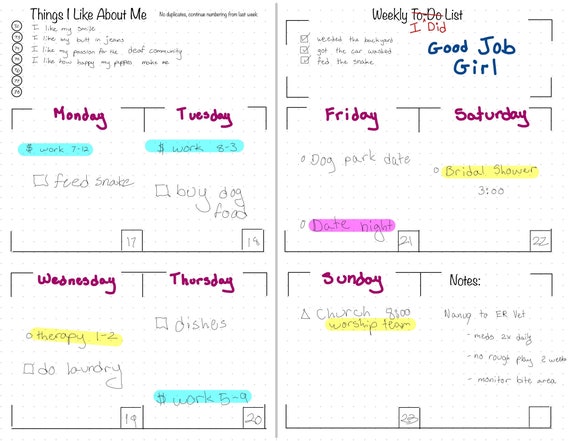 Things I Like About Me
No duplicates, continue numbering from last week.
I like my smile
I like my butt in jeans
I like my passion for the deaf community
I like how happy my puppies make me
Weekly To-Do List
I Did
weeded the backyard
got the car washed
fed the snake
Good Job
Girl
Monday
$ work 7-12
feed snake
17
Tuesday
$ work 8-3
buy dog
food
18
Wednesday
therapy 1-2
do laundry
19
Thursday
dishes
$ work 5-9
20
Friday
Dog park date
Date night
21
Saturday
Bridal Shower
3:00
22
Sunday
Church 8:00
worship team
23
Notes:
Nanuq to ER Vet
- meds 2x daily
- no rough play 2 weeks
- monitor bite area